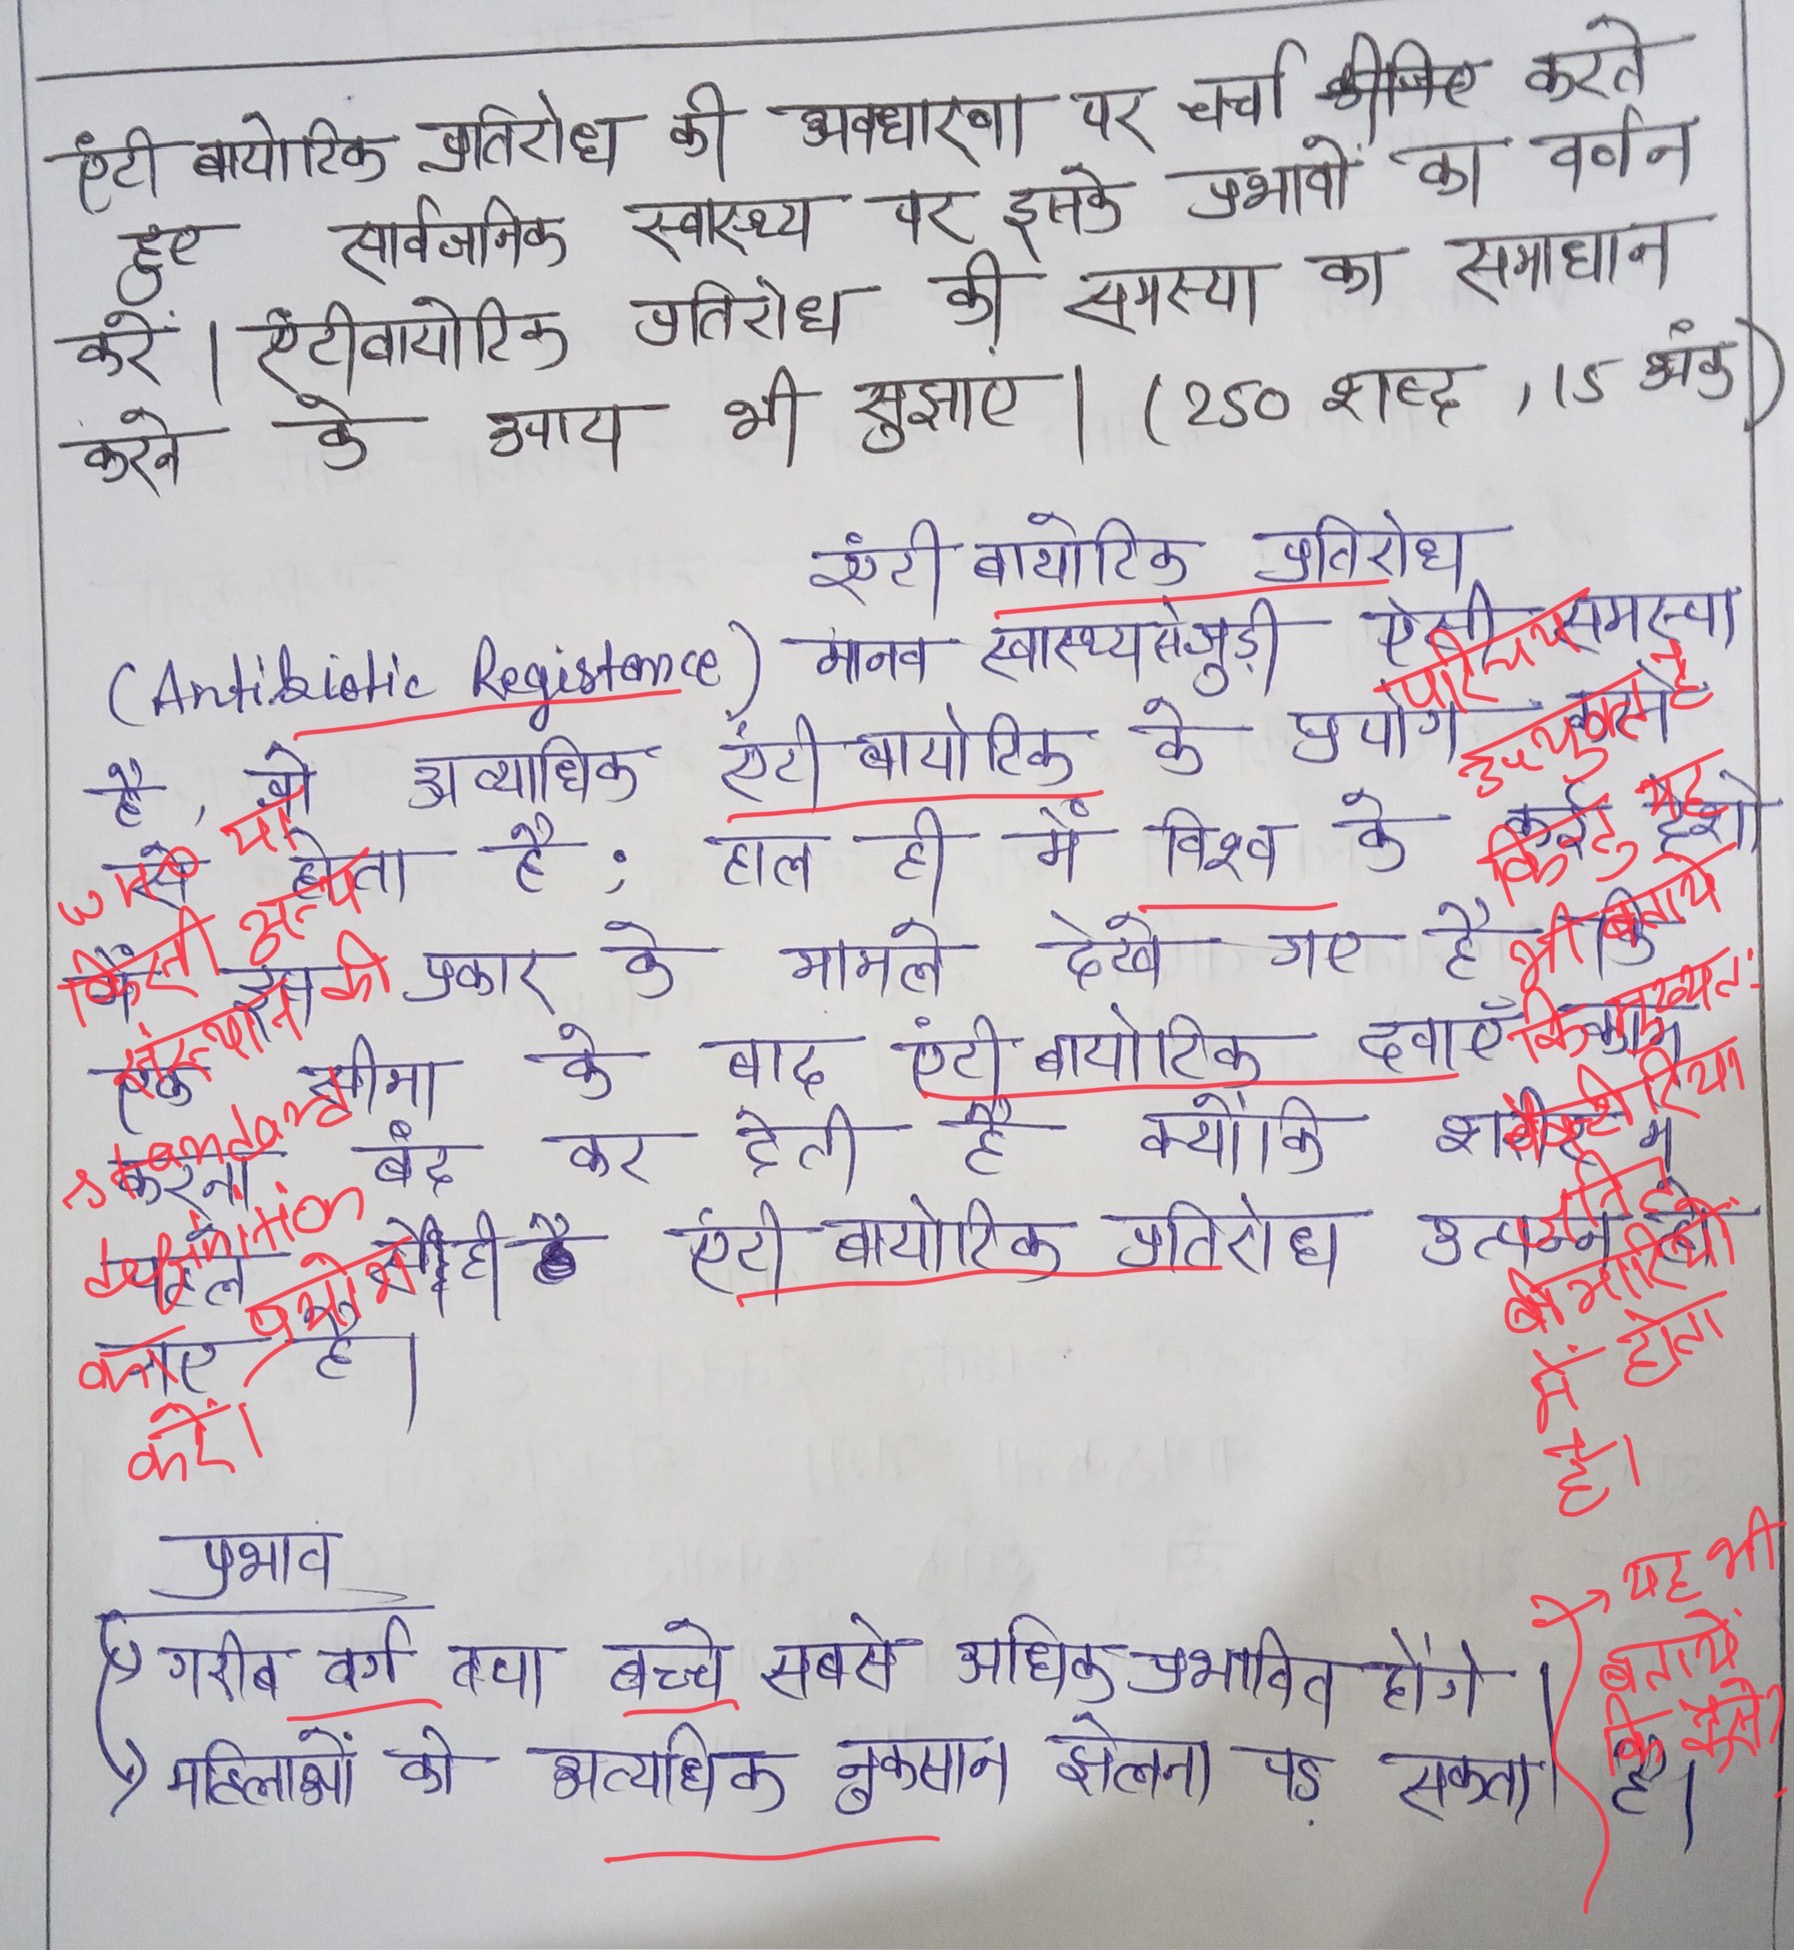 एंटी बायोटिक प्रतिरोध की अवधारणा पर चर्चा करते
हुए सार्वजनिक स्वास्थ्य पर इसके प्रभावों का वर्णन
करें। एंटीबायोटिक प्रतिरोध की समस्या का समाधान
करने के उपाय भी सुझाए। (250 शब्द, 15 अंक)
एंटी बायोटिक प्रतिरोध
(Antibiotic Registance) मानव स्वास्थ्य से जुड़ी ऐसी समस्या
है, जो अत्याधिक एंटी बायोटिक के प्रयोग करने
से होता है; हाल ही में विश्व के कई देशो
में इस प्रकार के मामले देखे गए है कि
एक सीमा के बाद एंटी बायोटिक दवाएँ काम
करना बंद कर देती है क्योंकि शरीर में
पहले से ही एंटी बायोटिक प्रतिरोध उत्पन्न हो
गए है।
परिचय
उपयुक्त है
किंतु यह
भी बताये
कि मुख्यतः
बैक्टीरिया
जनित
बीमारियों
में होता
है।
WHO या
किसी अन्य
संस्थान की
standard
definition
का प्रयोग
करें।
प्रभाव
गरीब वर्ग तथा बच्चे सबसे अधिक प्रभावित होंगे।
महिलाओं को अत्यधिक नुकसान झेलना पड़ सकता है।
→ यह भी
बताये
कि कैसे?